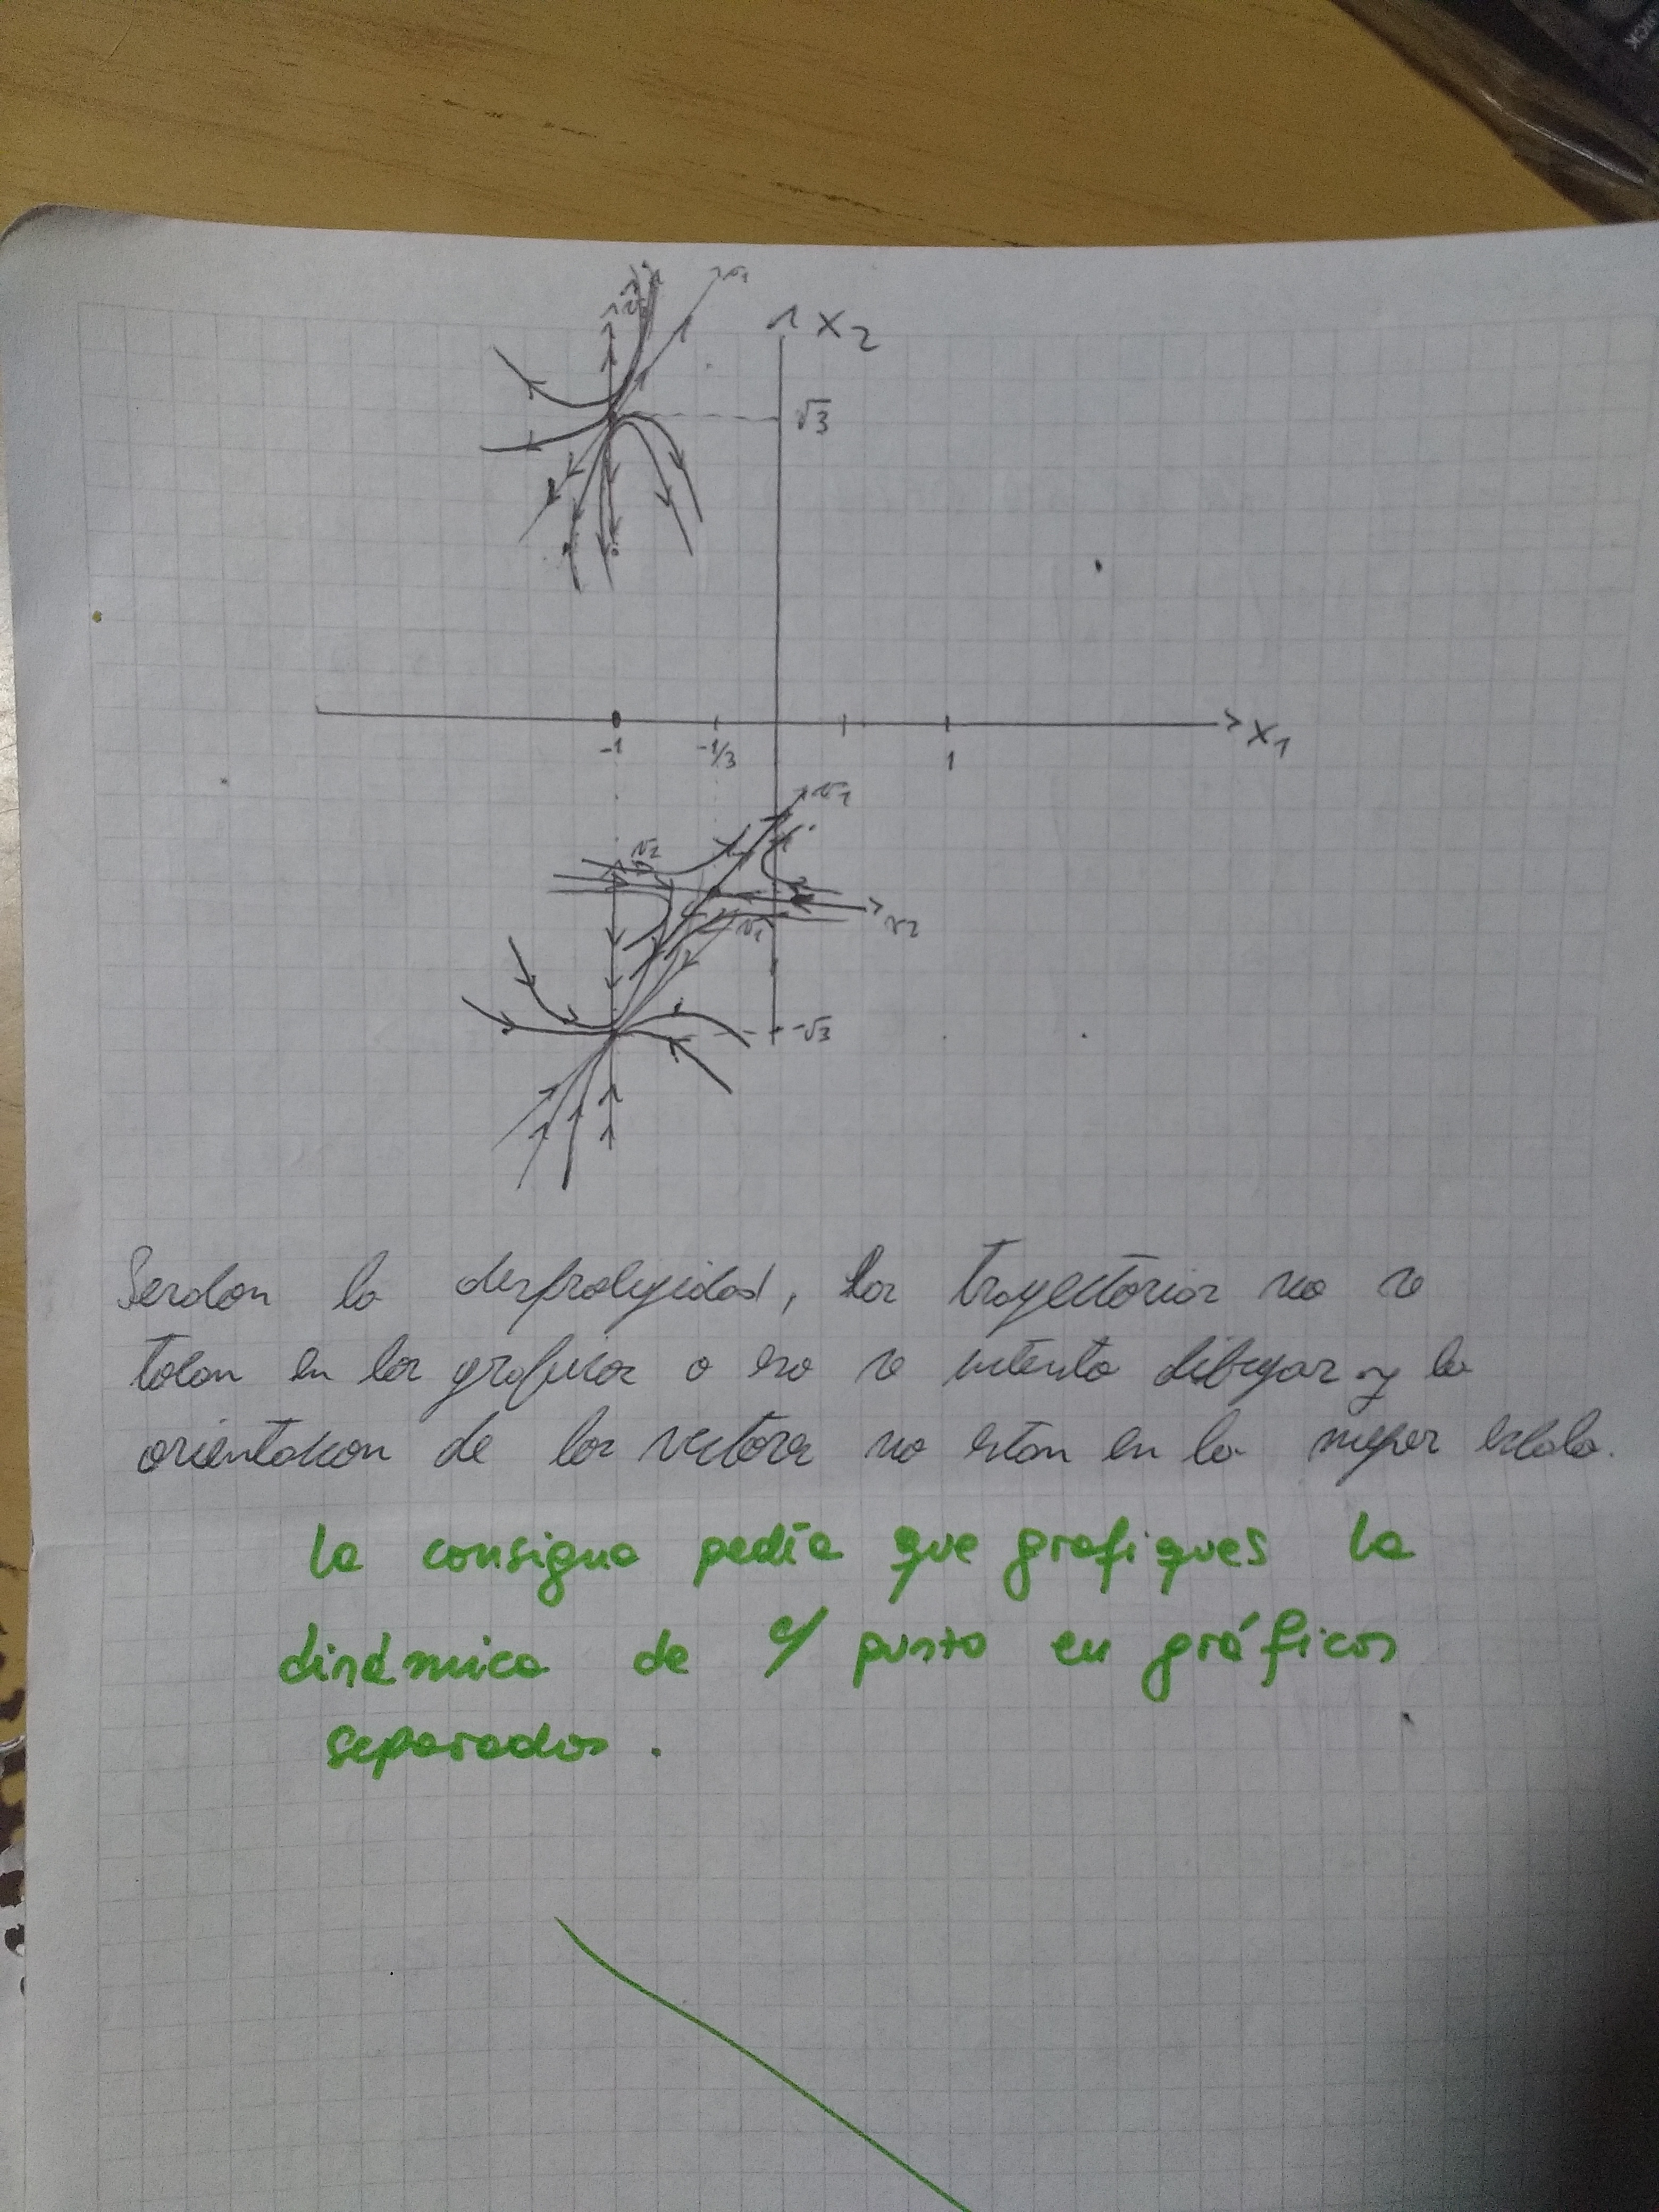 v1
x2
√3
-1
-1/3
1
x1
v1
v2
v2
v1
-√3
Perdon la desprolijidad, las trayectorias no se
tocan en los graficos o eso se intento dibujar y la
orientacion de los vectores no estan en la mejor escala.
la consigna pedía que grafiques la
dinámica de c/ punto en gráficos
separados.